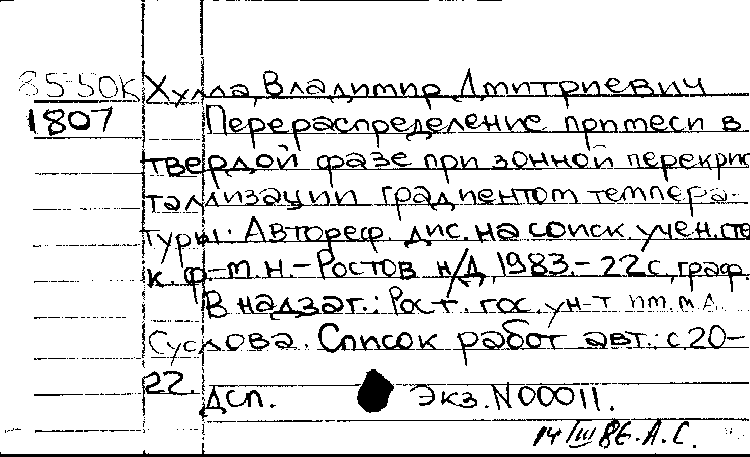 85-50к Хулла, Владимир Дмитриевич
1807 Перераспределение примеси в
твердой фазе при зонной перекрис
таллизации градиентом темпера-
туры: Автореф. дис. на соиск. учен. сте
к. ф-м.н. - Ростов н/Д, 1983. - 22с, граф.
В надзаг.: Рост. гос. ун-т им. М.А.
Суслова. Список работ авт.: с 20-
22.
ДСП. Экз. N00011.
14/III 86. А.С.